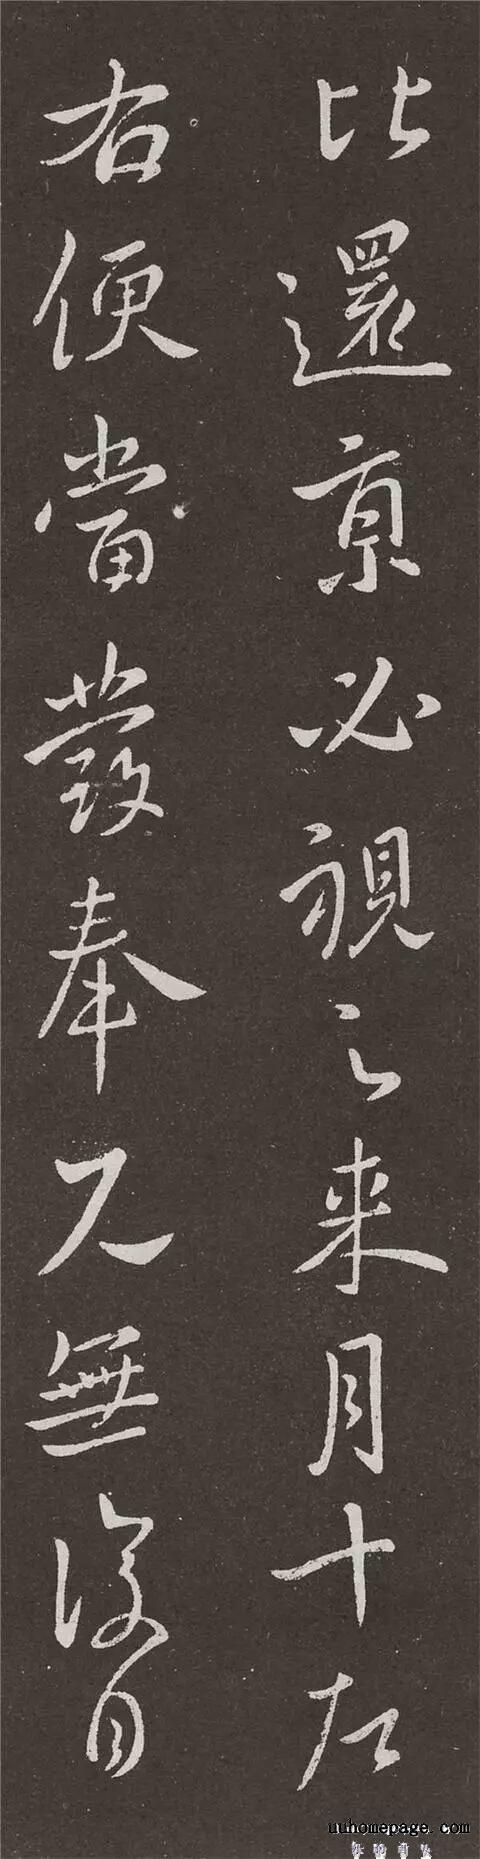 比還京必視之来月十左
右便當發奉無復日
uuhomepage.com